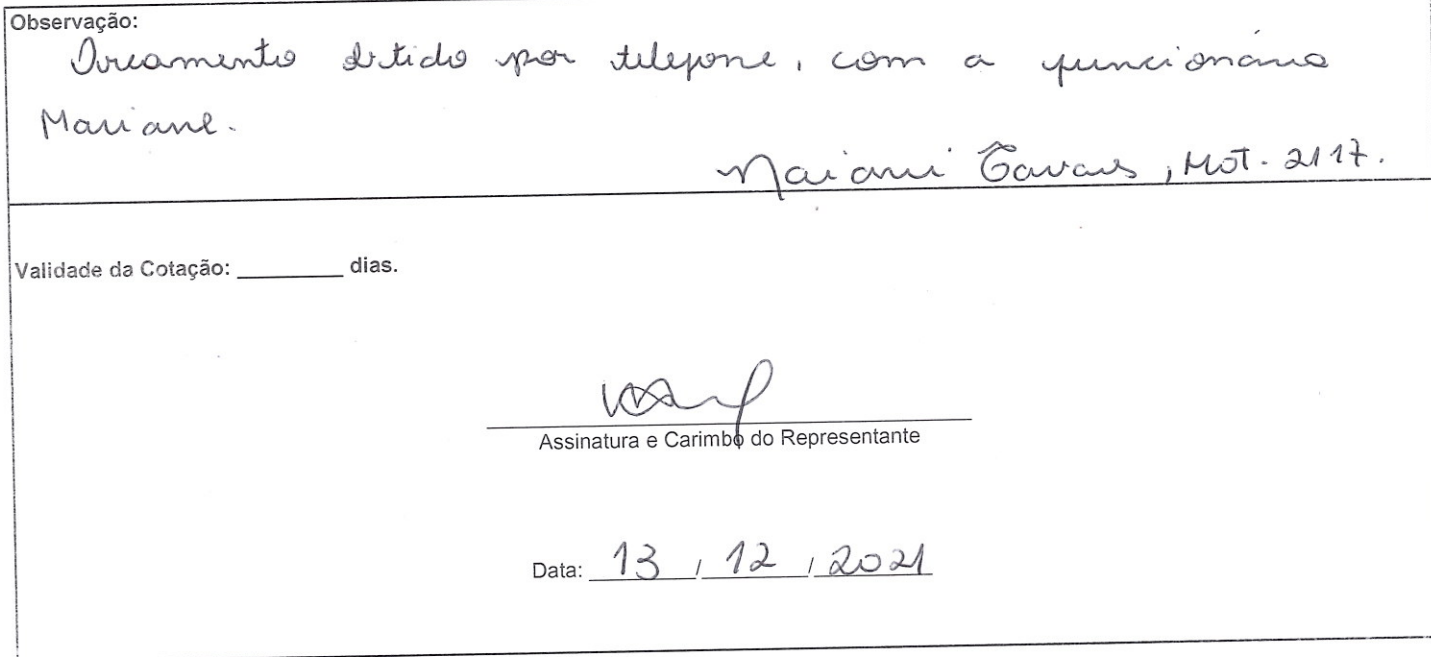 Observação:
Orçamento obtido por telefone, com a funcionária
Mariane.
Maiani Tavares, Mat. 2117.
Validade da Cotação: _________ dias.
Assinatura e Carimbo do Representante
Data: 13 / 12 / 2021